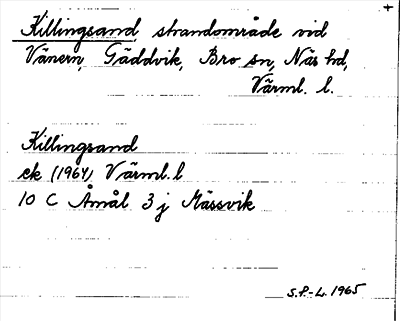 Killingsand, strandområde vid
Vänern, Gäddvik, Bro sn, Näs hd,
Värml. l.
Killingsand
ek (1964) Värml. l
10 C Åmål 3 j Mässvik
S.P.-L. 1965